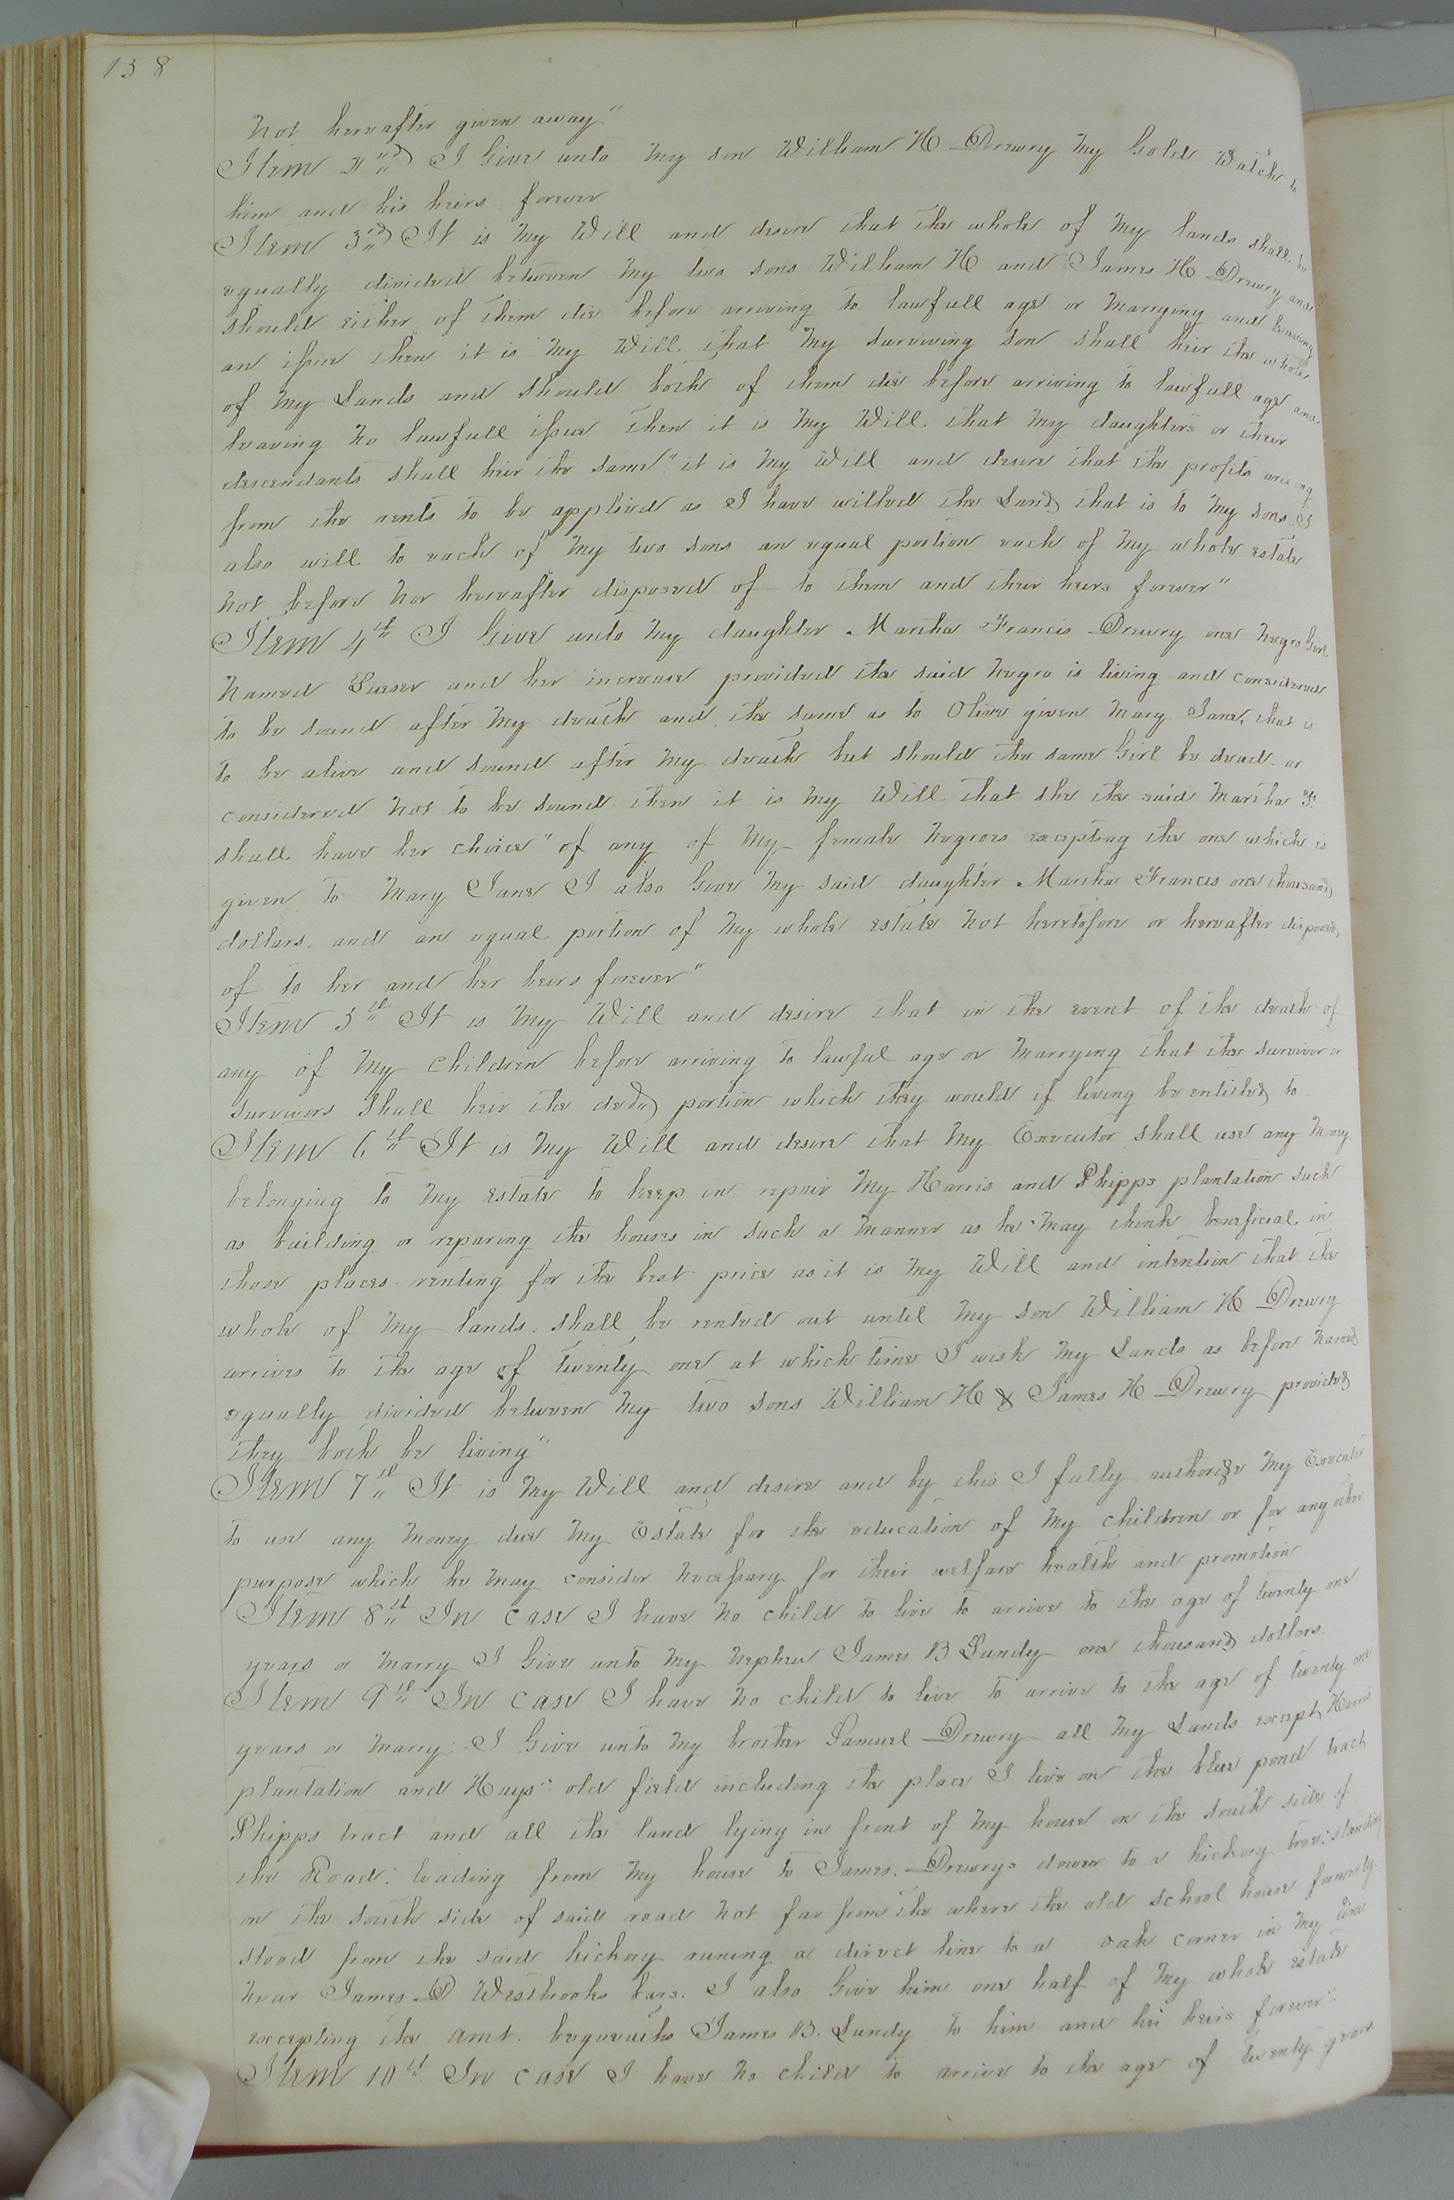 138
not hereafter given away"
Item 2nd I Give unto my son William H Drewry my Gold Watch to
him and his heirs forever
Item 3rd It is my Will and desire that the whole of my lands shall be
equally divided between my two sons William H and James H Drewry and
should either of them die before arriving to lawfull age or marrying and leaving
an issue then it is my Will that my surviving son shall heir the whole
of my Lands and should both of them die before arriving to lawfull age and
leaving no lawfull issue then it is my Will that my daughters or their
descendants shall heir the same" it is my Will and desire that the profits arising
from the rents to be applied as I have willed the Land that is to my sons I
also will to each of my two sons an equal portion each of my whole estate
not before nor hereafter disposed of to them and their heirs forever"
Item 4th I Give unto my daughter Martha Francis Drewry one negro Girl
named and her increase provided the said negro is living and considered
to be sound after my death and the same as to Olive given Mary Jane, that is
to be alive and sound after my death but should the same Girl be dead or
considered not to be sound then it is my Will that she the said Martha F.
shall have her choice" of any of my female negroes excepting the one which is
given to Mary Jane I also Give my said daughter Martha Francis one thousand
dollars. and an equal portion of my whole estate not heretofore or hereafter disposed
of to her and her heirs forever"
Item 5th It is my Will and desire that in the event of the death of
any of my children before arriving to lawful age or marrying that the survivor or
survivors shall heir the portion which they would if living be entitled to
Item 6th It is my Will and desire that my Executor shall use any money
belonging to my estate to keep in repair my Harris and Phipps plantation such
as building or reparing the houses in such a manner as he may think beneficial in
those places renting for the best price as it is my Will and intention that the
whole of my lands shall be rented out until my son William H Drewry
arrives to the age of twenty one at which time I wish my Lands as before named
equally divided between my two sons William H & James H Drewry provided
they both be living"
Item 7th It is my Will and desire and by this I fully authorize my Executor
to use any money due my Estate for the education of my children or for any other
purpose which he may consider necessary for their welfare health and promotion
Item 8th In case I have no child to live to arrive to the age of twenty one
years or marry I Give unto my nephew James B Lundy one thousand dollars.
Item 9th In case I have no child to live to arrive to the age of twenty one
years or marry: I Give unto my brother Samuel Drewry all my Lands except Harris
plantation and Hays" old field including the place I live on the blue pond tract
Phipps tract and all the land lying in front of my house on the south side of
the Road: leading from my house to James. Drewrys down to a hickory tree: standing
on the south side of said road not far from the where the old school house formerly
stood from the said hickory runing a direct line to a oak corner in my line
near James D Westbrooks bars. I also Give him one half of my whole estate
excepting the amt. bequeaths James B. Lundy to him and his heirs forever"
Item 10th In case I have no child to arrive to the age of twenty years